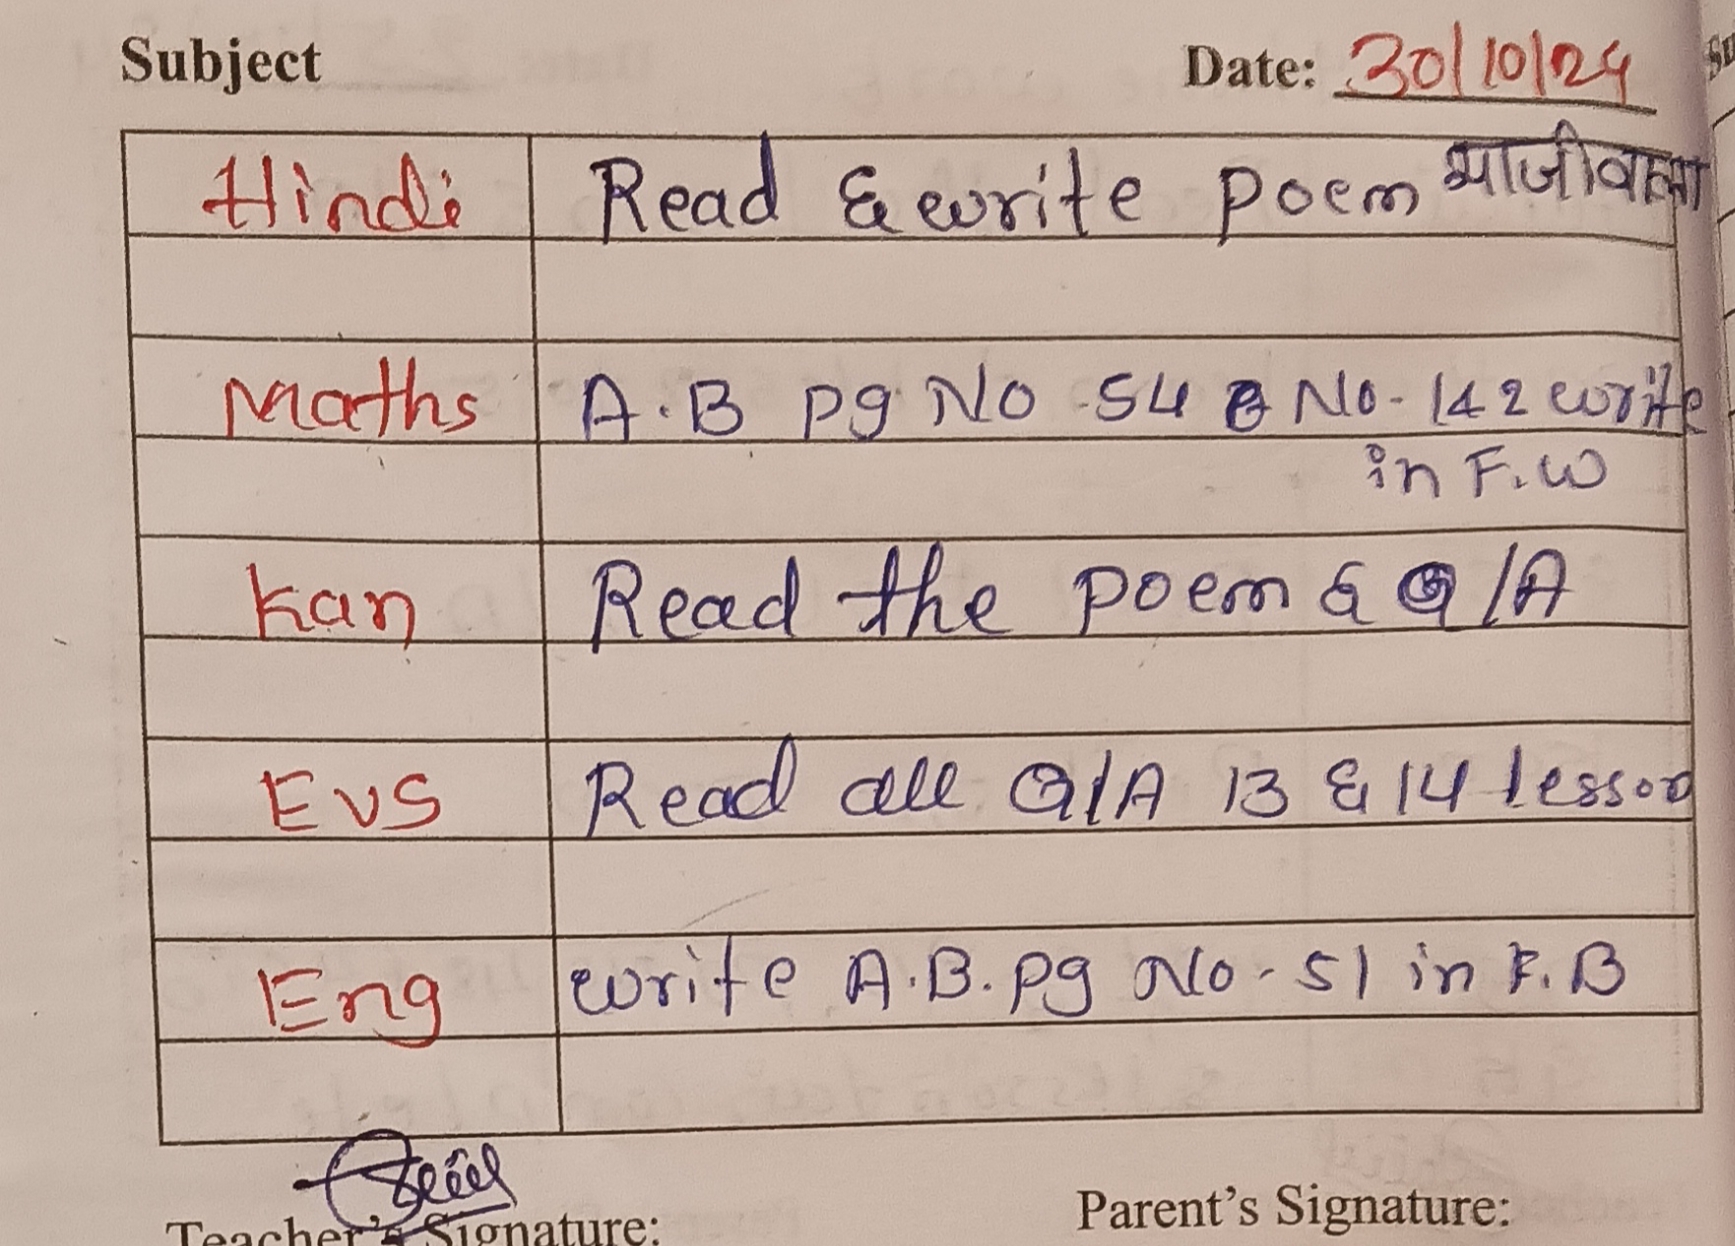 Subject Date: 30/10/24
Hindi Read & write poem भाजीवाला
Maths A.B pg No 54 & No-142 write
in F.W
Kan Read the poem & Q/A
EVS Read all Q/A 13 & 14 lesson
Eng write A.B. pg No-51 in F.B
Teacher's Signature: Parent's Signature: